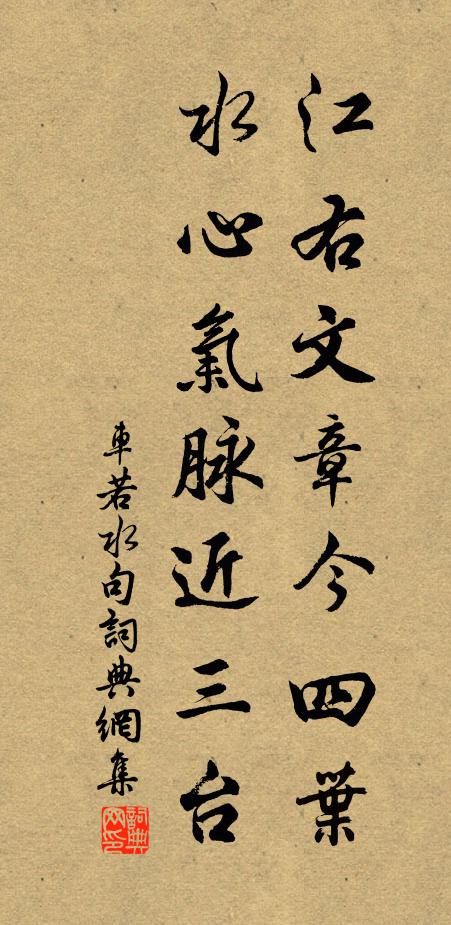 江右文章今四葉
水心氣脉近三台
車若水句詞典網集
詞典
网印